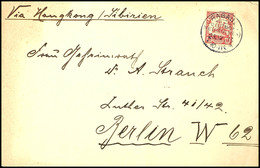 Via Hongkong / Sibirien
Frau Geheimrath
v. A. Strauch
Luther Str. 41/42
Berlin W 62